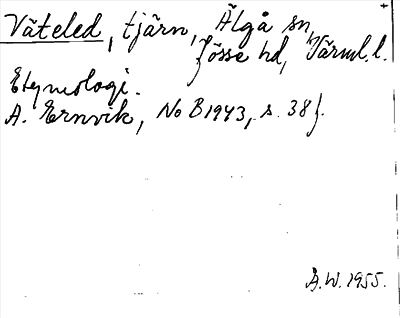 Väteled, tjärn, Älgå sn,
Jösse hd, Värml. l.
Etymologi.
A. Ernvik, No B 1943, s. 38 f.
Å.W. 1955.